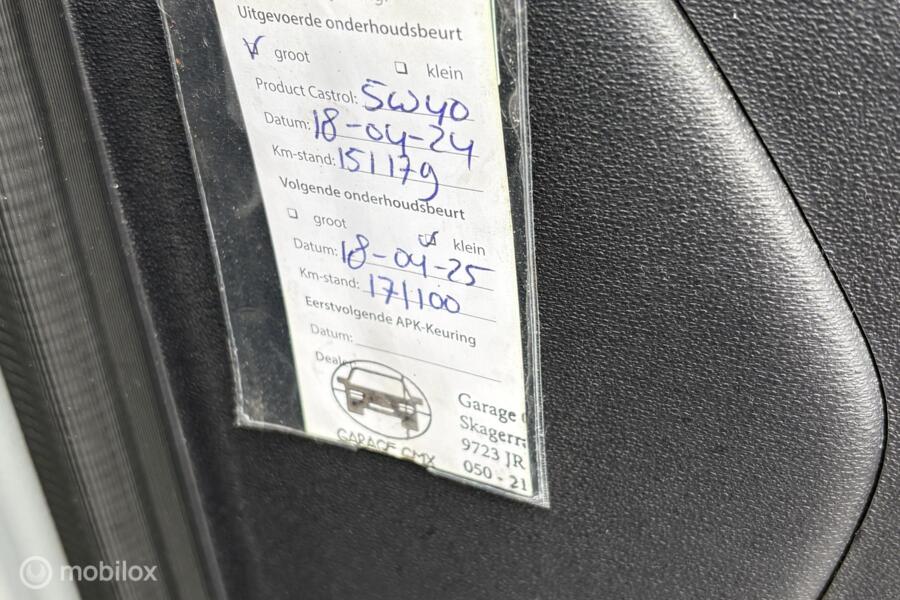 Uitgevoerde onderhoudsbeurt
groot klein
Product Castrol: 5W40
Datum: 18-04-24
Km-stand: 151179
Volgende onderhoudsbeurt
groot klein
Datum: 18-04-25
Km-stand: 171100
Eerstvolgende APK-Keuring
Datum:
Dealer
GARAGE CMX
Garage
Skagerr
9723 JR
050 - 21
mobilox